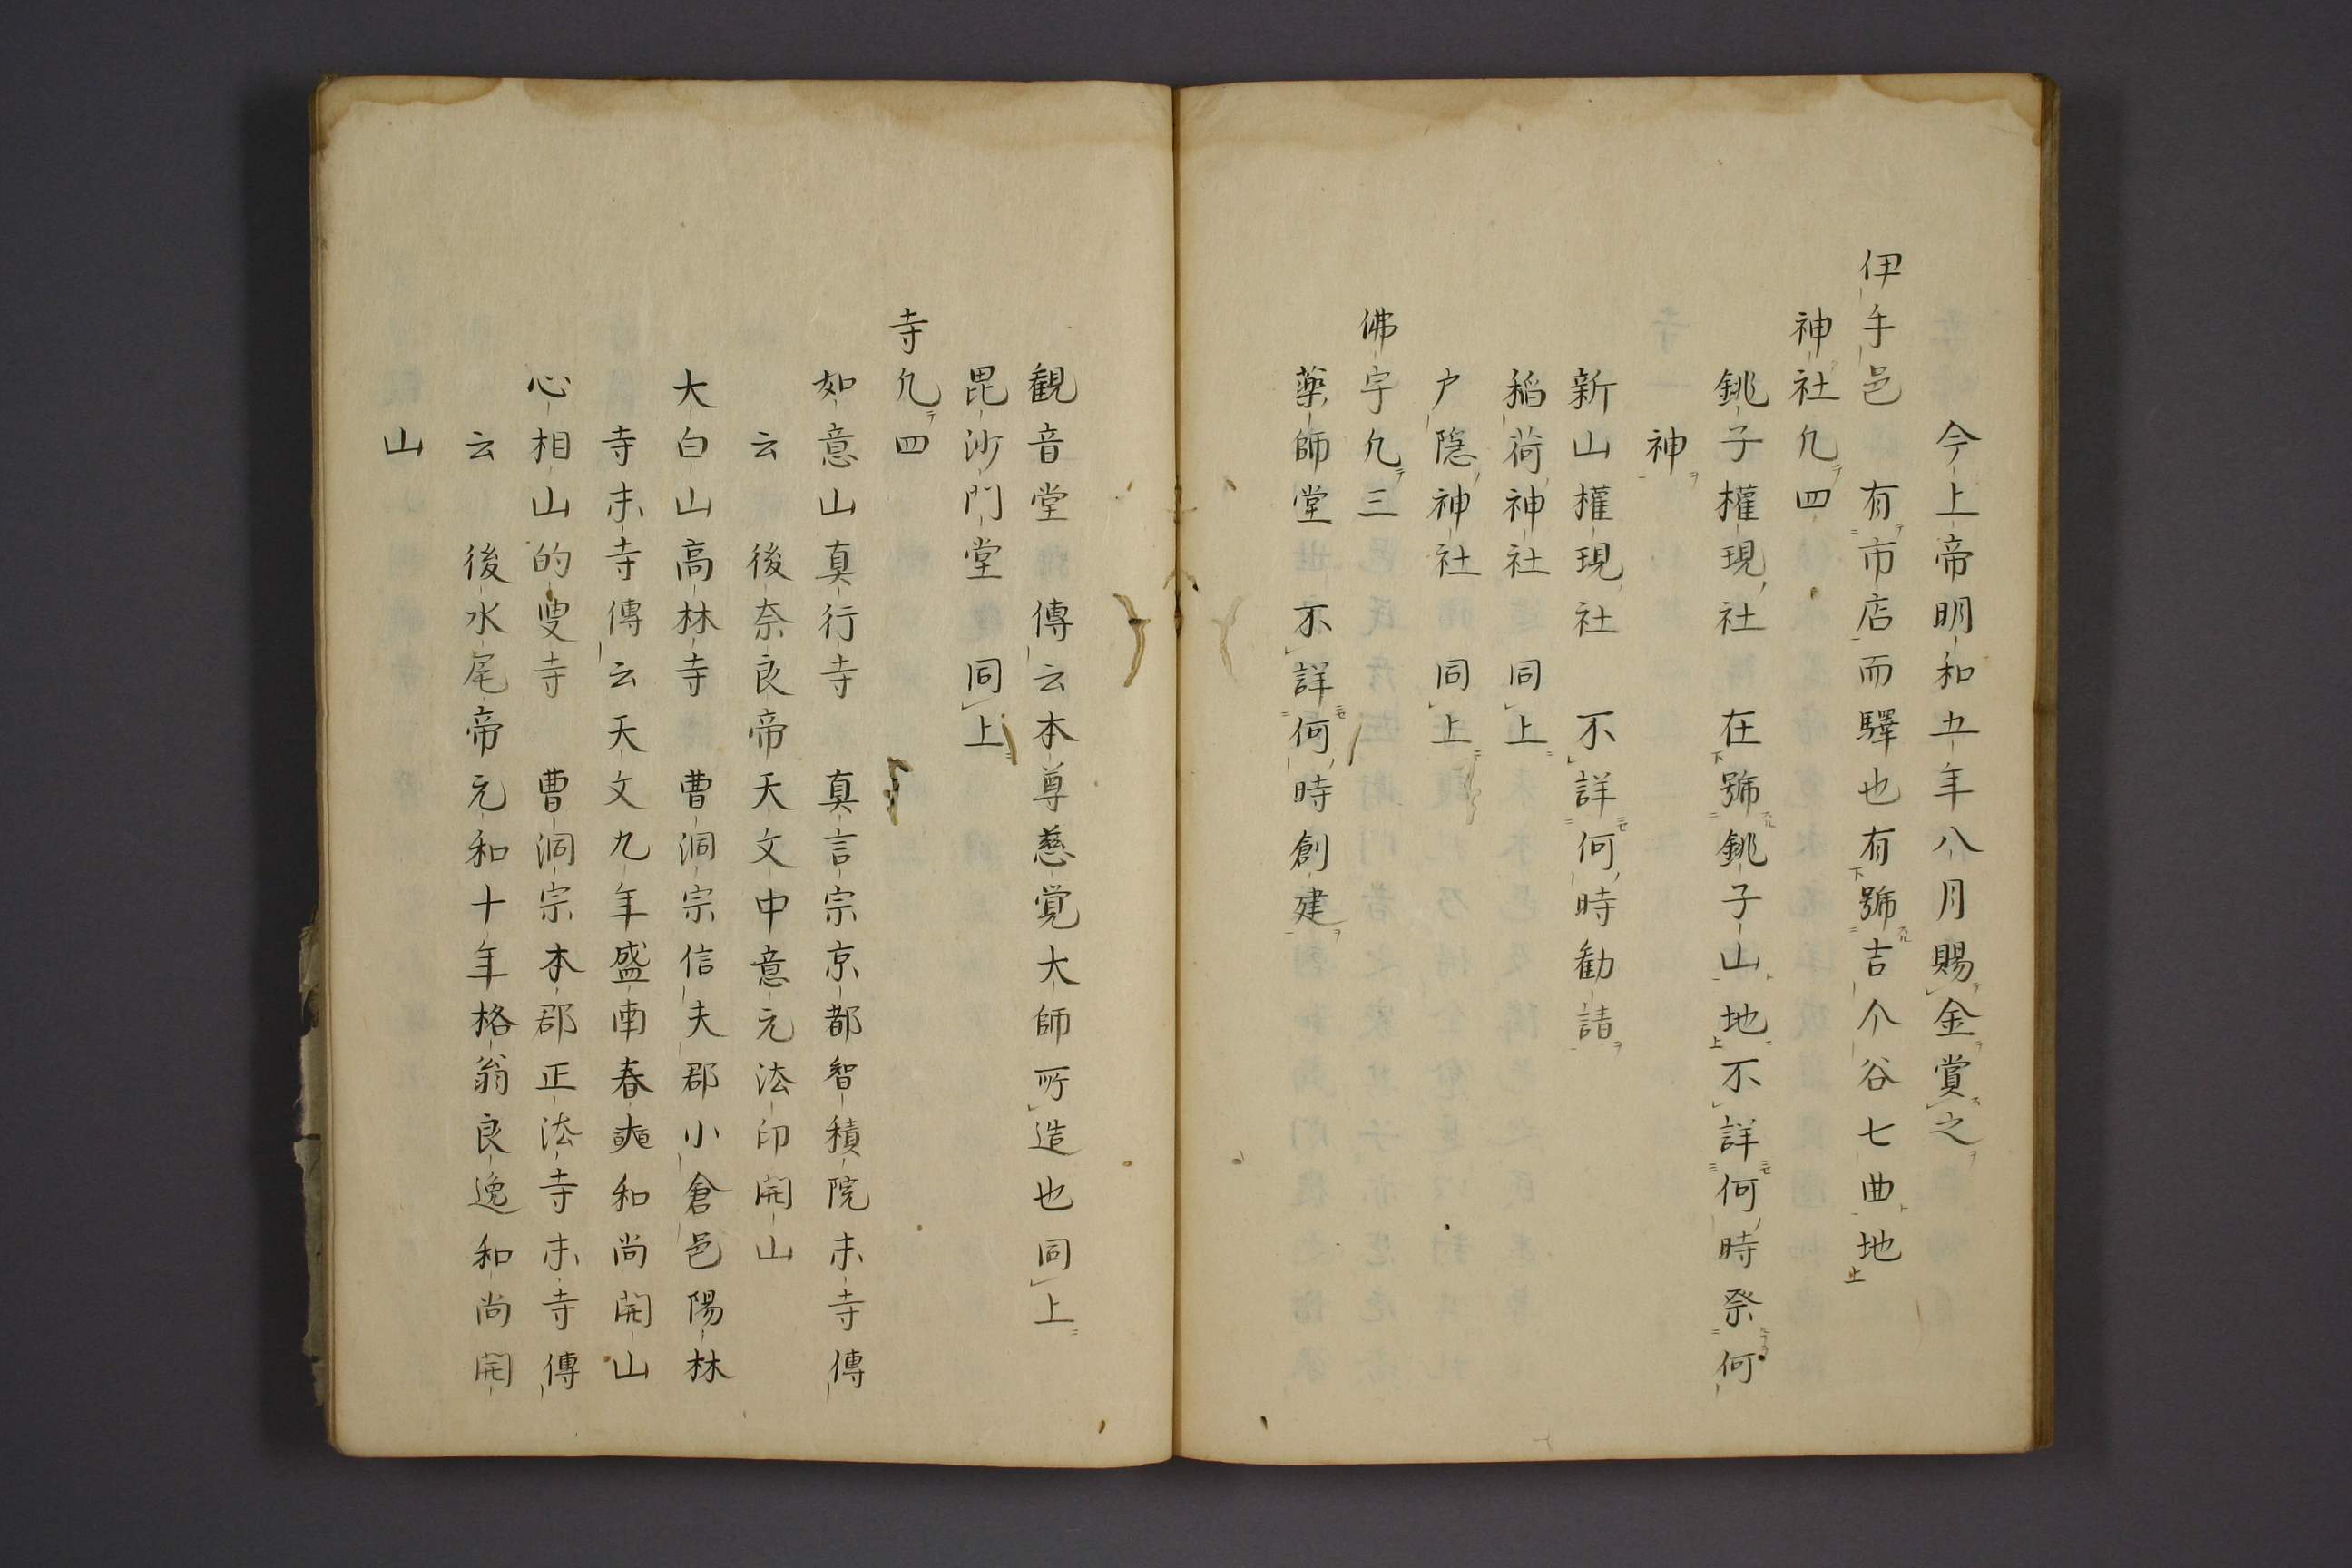 今上帝明和五年八月賜金賞之
伊手邑　有市店而驛也有號吉个谷七曲地
神社凢四
銚子權現社　在號銚子山地不詳何時祭何
神
新山權現社　不詳何時勧請
稲荷神社　同上
戸隠神社　同上
佛宇凢三
藥師堂　不詳何時創建
観音堂　傳云本尊慈覚大師所造也同上
毘沙門堂　同上
寺凢四
如意山真行寺　真言宗京都智積院末寺傳
云　後奈良帝天文中意元法印開山
大白山高林寺　曹洞宗信夫郡小倉邑陽林
寺末寺傳云天文九年盛南春奭和尚開山
心相山的叟寺　曹洞宗本郡正法寺末寺傳
云　後水尾帝元和十年格翁良逸和尚開
山